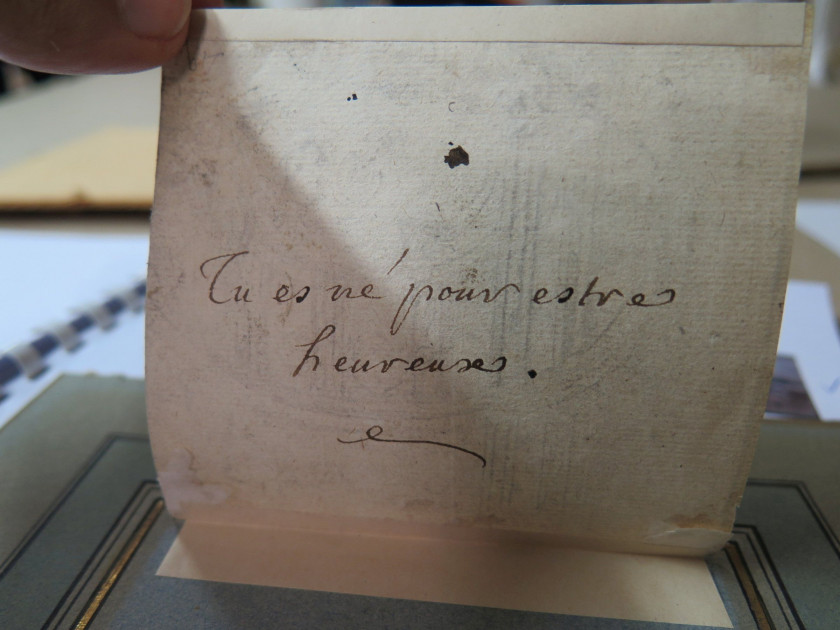 Tu es né pour estre
heureuse.